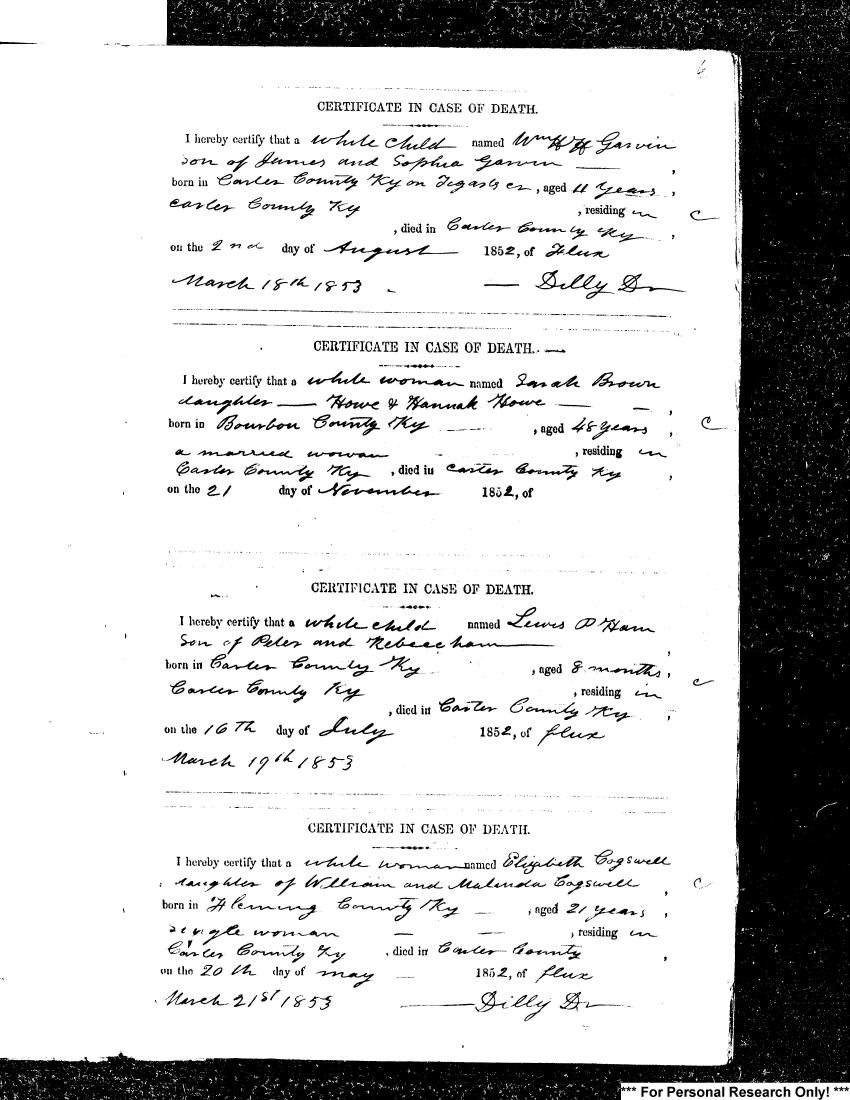 6
CERTIFICATE IN CASE OF DEATH.
I hereby certify that a white child named Wm Garvin
son of James and Sophia Garvin — ,
born in Carter County Ky on , aged 11 Years ,
Carter County Ky , residing in C
, died in Carter County Ky ,
on the 2nd day of August 1852, of Flux
March 18th 1853 — Dilly Dr
CERTIFICATE IN CASE OF DEATH. —
I hereby certify that a white woman named Sarah Brown
daughter — Howe & Hannah Howe — — ,
born in Bourbon County Ky , aged 48 years , C
a married woman , residing in
Carter County Ky , died in Carter County Ky ,
on the 21 day of November 1852, of
CERTIFICATE IN CASE OF DEATH.
I hereby certify that a white child named Lewis P Ham
Son of Peter and Rebecc ham — ,
born in Carter County Ky , aged 8 months , C
Carter County Ky , residing in
, died in Carter County Ky ,
on the 16Th day of July 1852, of flux
March 19th 1853
CERTIFICATE IN CASE OF DEATH.
I hereby certify that a white woman named Elizabeth Cogswell
daughter of William and Malinda Cogswell , C
born in Fleming County Ky — , aged 21 years ,
single woman — — , residing in
Carter County Ky , died in Carter County ,
on the 20th day of may — 1852, of flux
March 21st 1853 — Dilly Dr
*** For Personal Research Only! ***